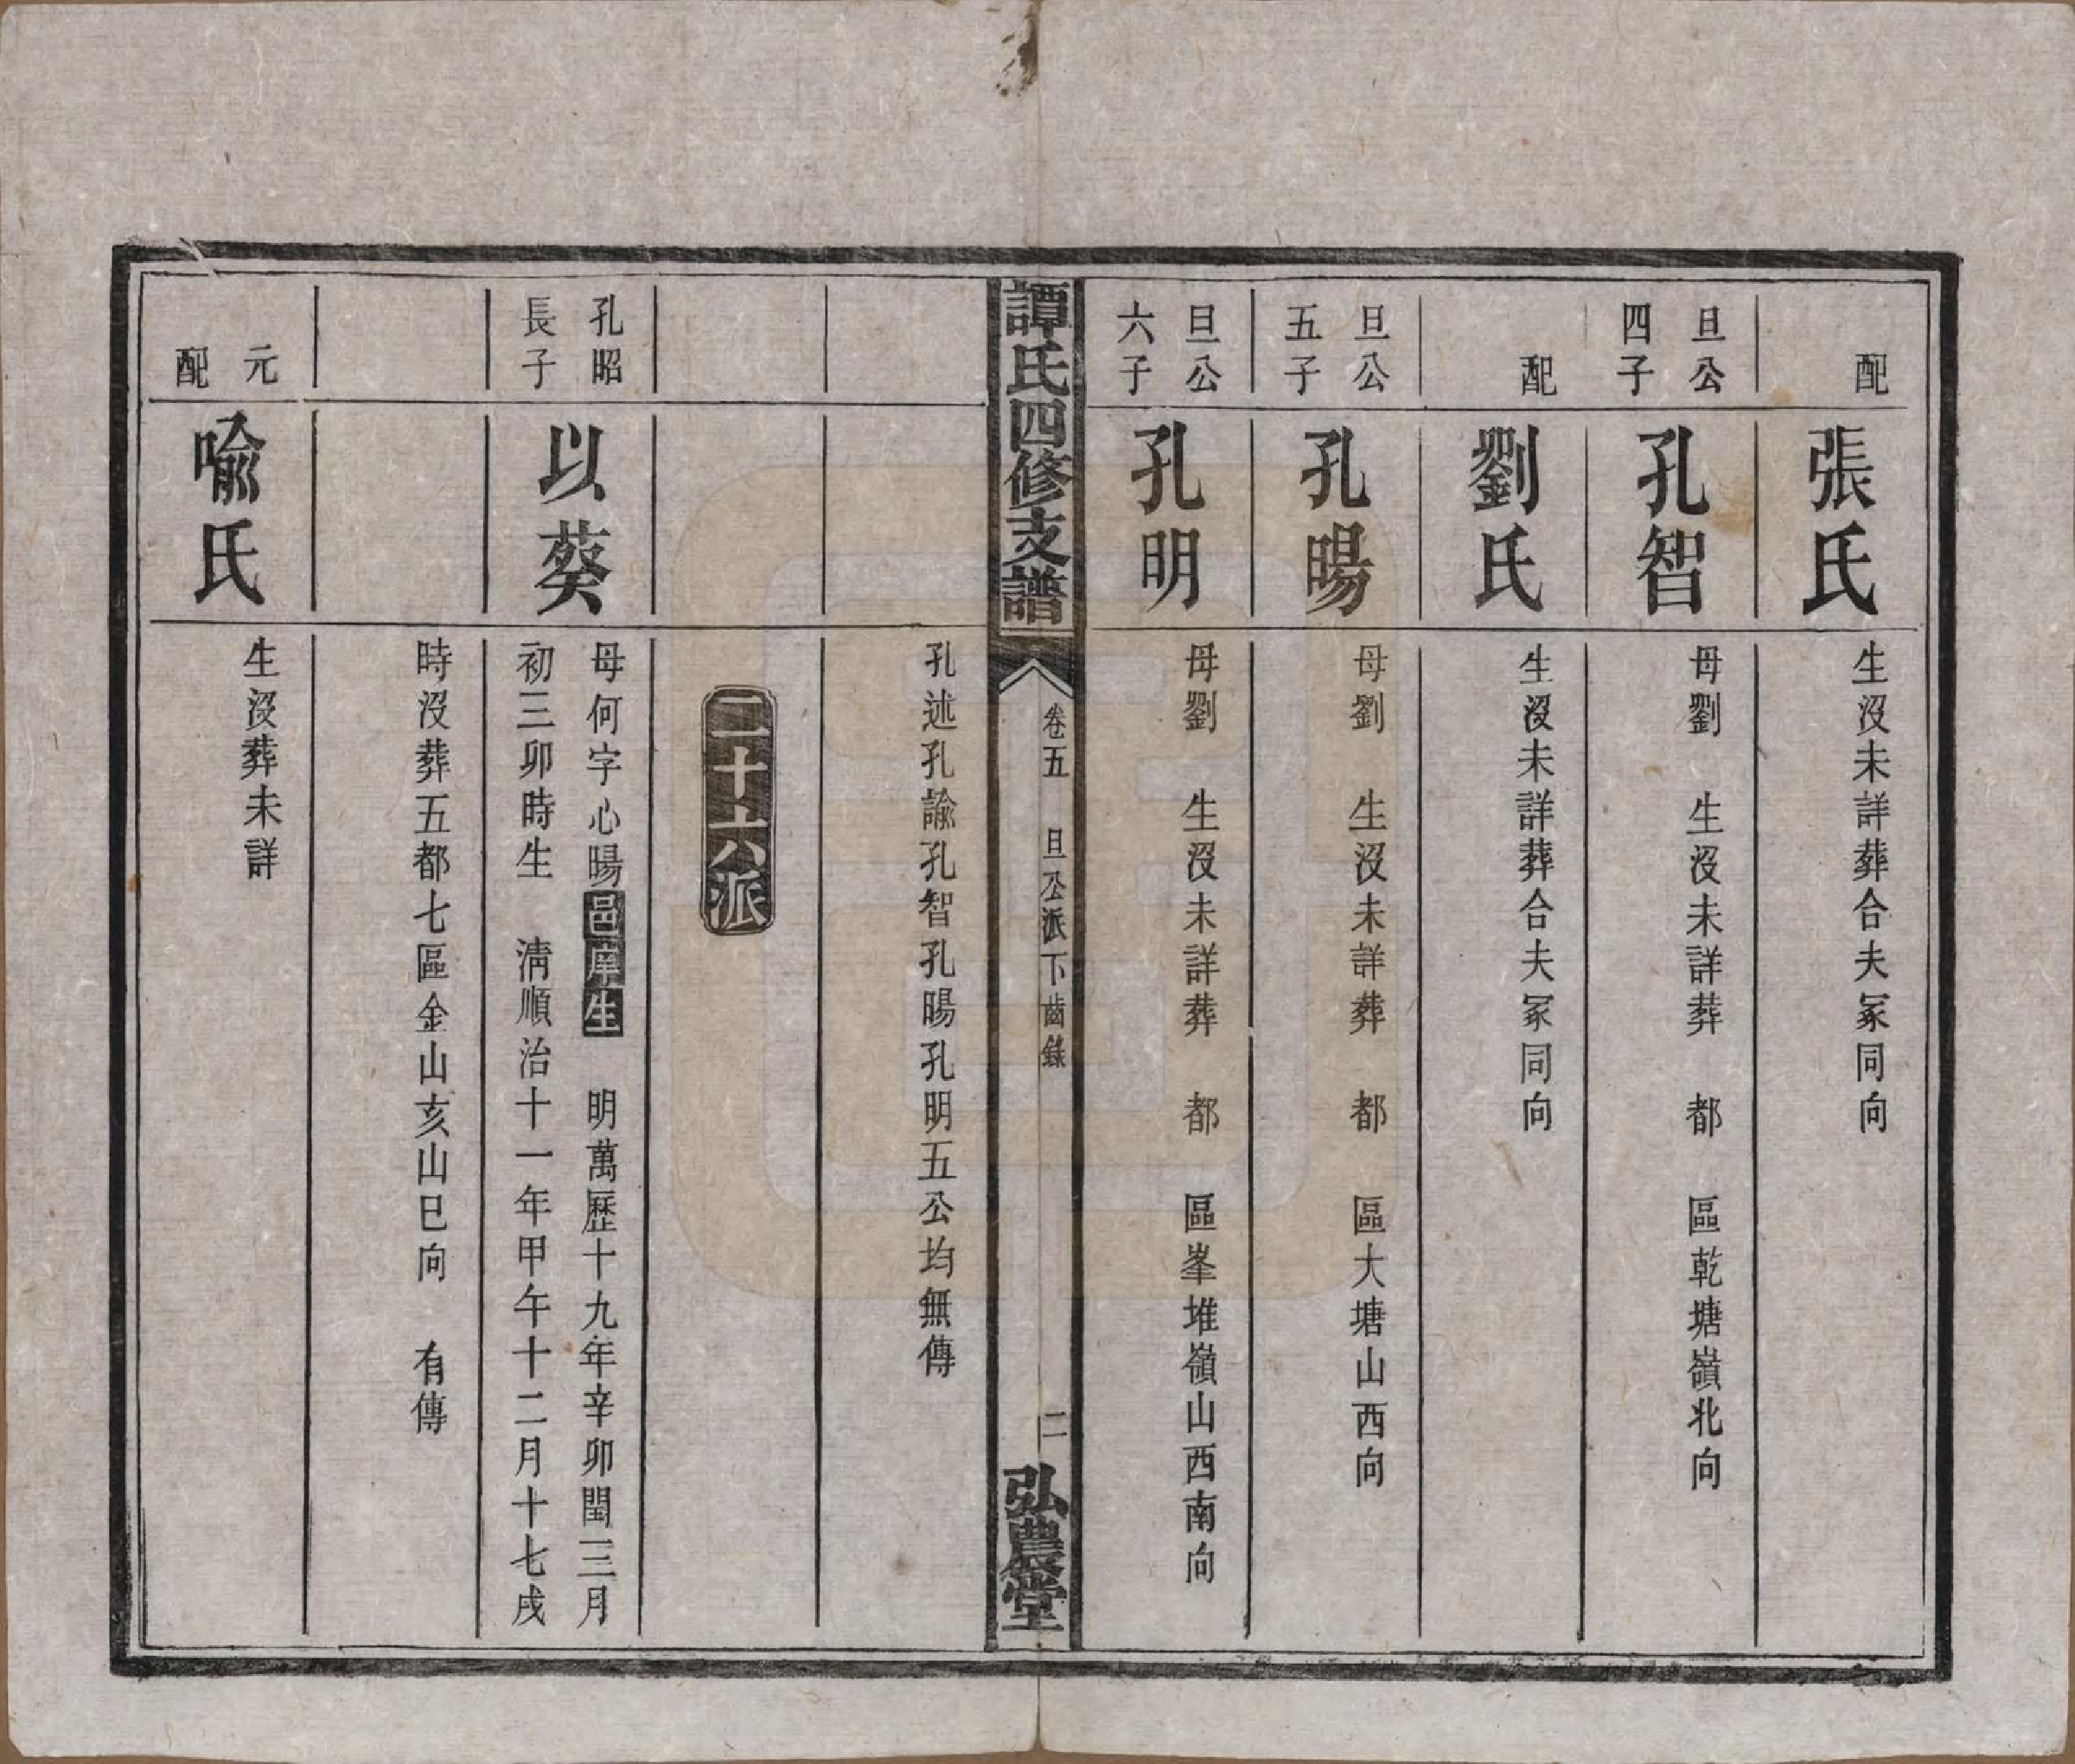 配
張氏
生沒未詳葬合夫冢同向
旦公
四子
孔智
母劉　生沒未詳葬　都　區乾塘嶺北向
配
劉氏
生沒未詳葬合夫冢同向
旦公
五子
孔暘
母劉　生沒未詳葬　都　區大塘山西向
旦公
六子
孔明
母劉　生沒未詳葬　都　區峯堆嶺山西南向
譚氏四修支譜
卷五　旦公派下齒錄
二
弘農堂
孔述孔諭孔智孔暘孔明五公均無傳
二十六派
孔昭
長子
以葵
母何字心暘邑庠生　明萬歷十九年辛卯閏三月
初三卯時生　清順治十一年甲午十二月十七戌
時沒葬五都七區金山亥山巳向　有傳
元
配
喻氏
生沒葬未詳